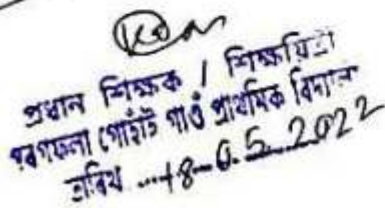 প্ৰধান শিক্ষক / শিক্ষয়িত্ৰী
গোহাঁই গাওঁ প্ৰাথমিক বিদ্যালয়
তাৰিখ ...18-0.5.2022